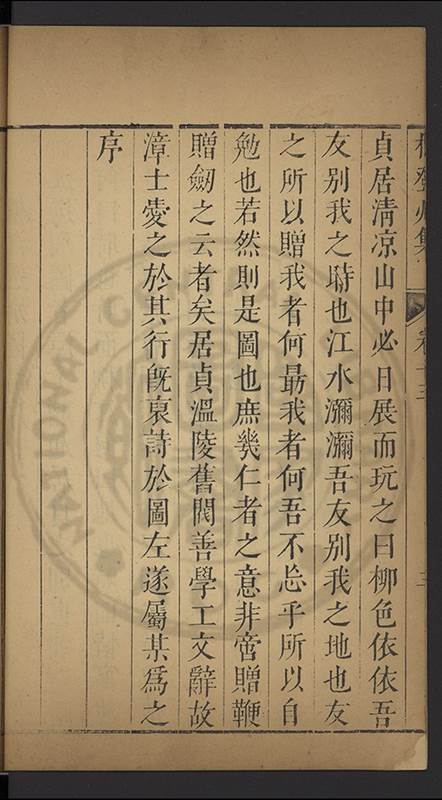 貞居清凉山中必日展而玩之曰栁色依依吾
友别我之時也江水瀰瀰吾友别我之地也友
之所以贈我者何最我者何吾不忘乎所以自
勉也若然則是圖也庶幾仁者之意非啻贈鞭
贈劒之云者矣居貞溫陵舊閥善學工文辭故
漳士愛之於其行旣裒詩於圖左遂屬某爲之
序